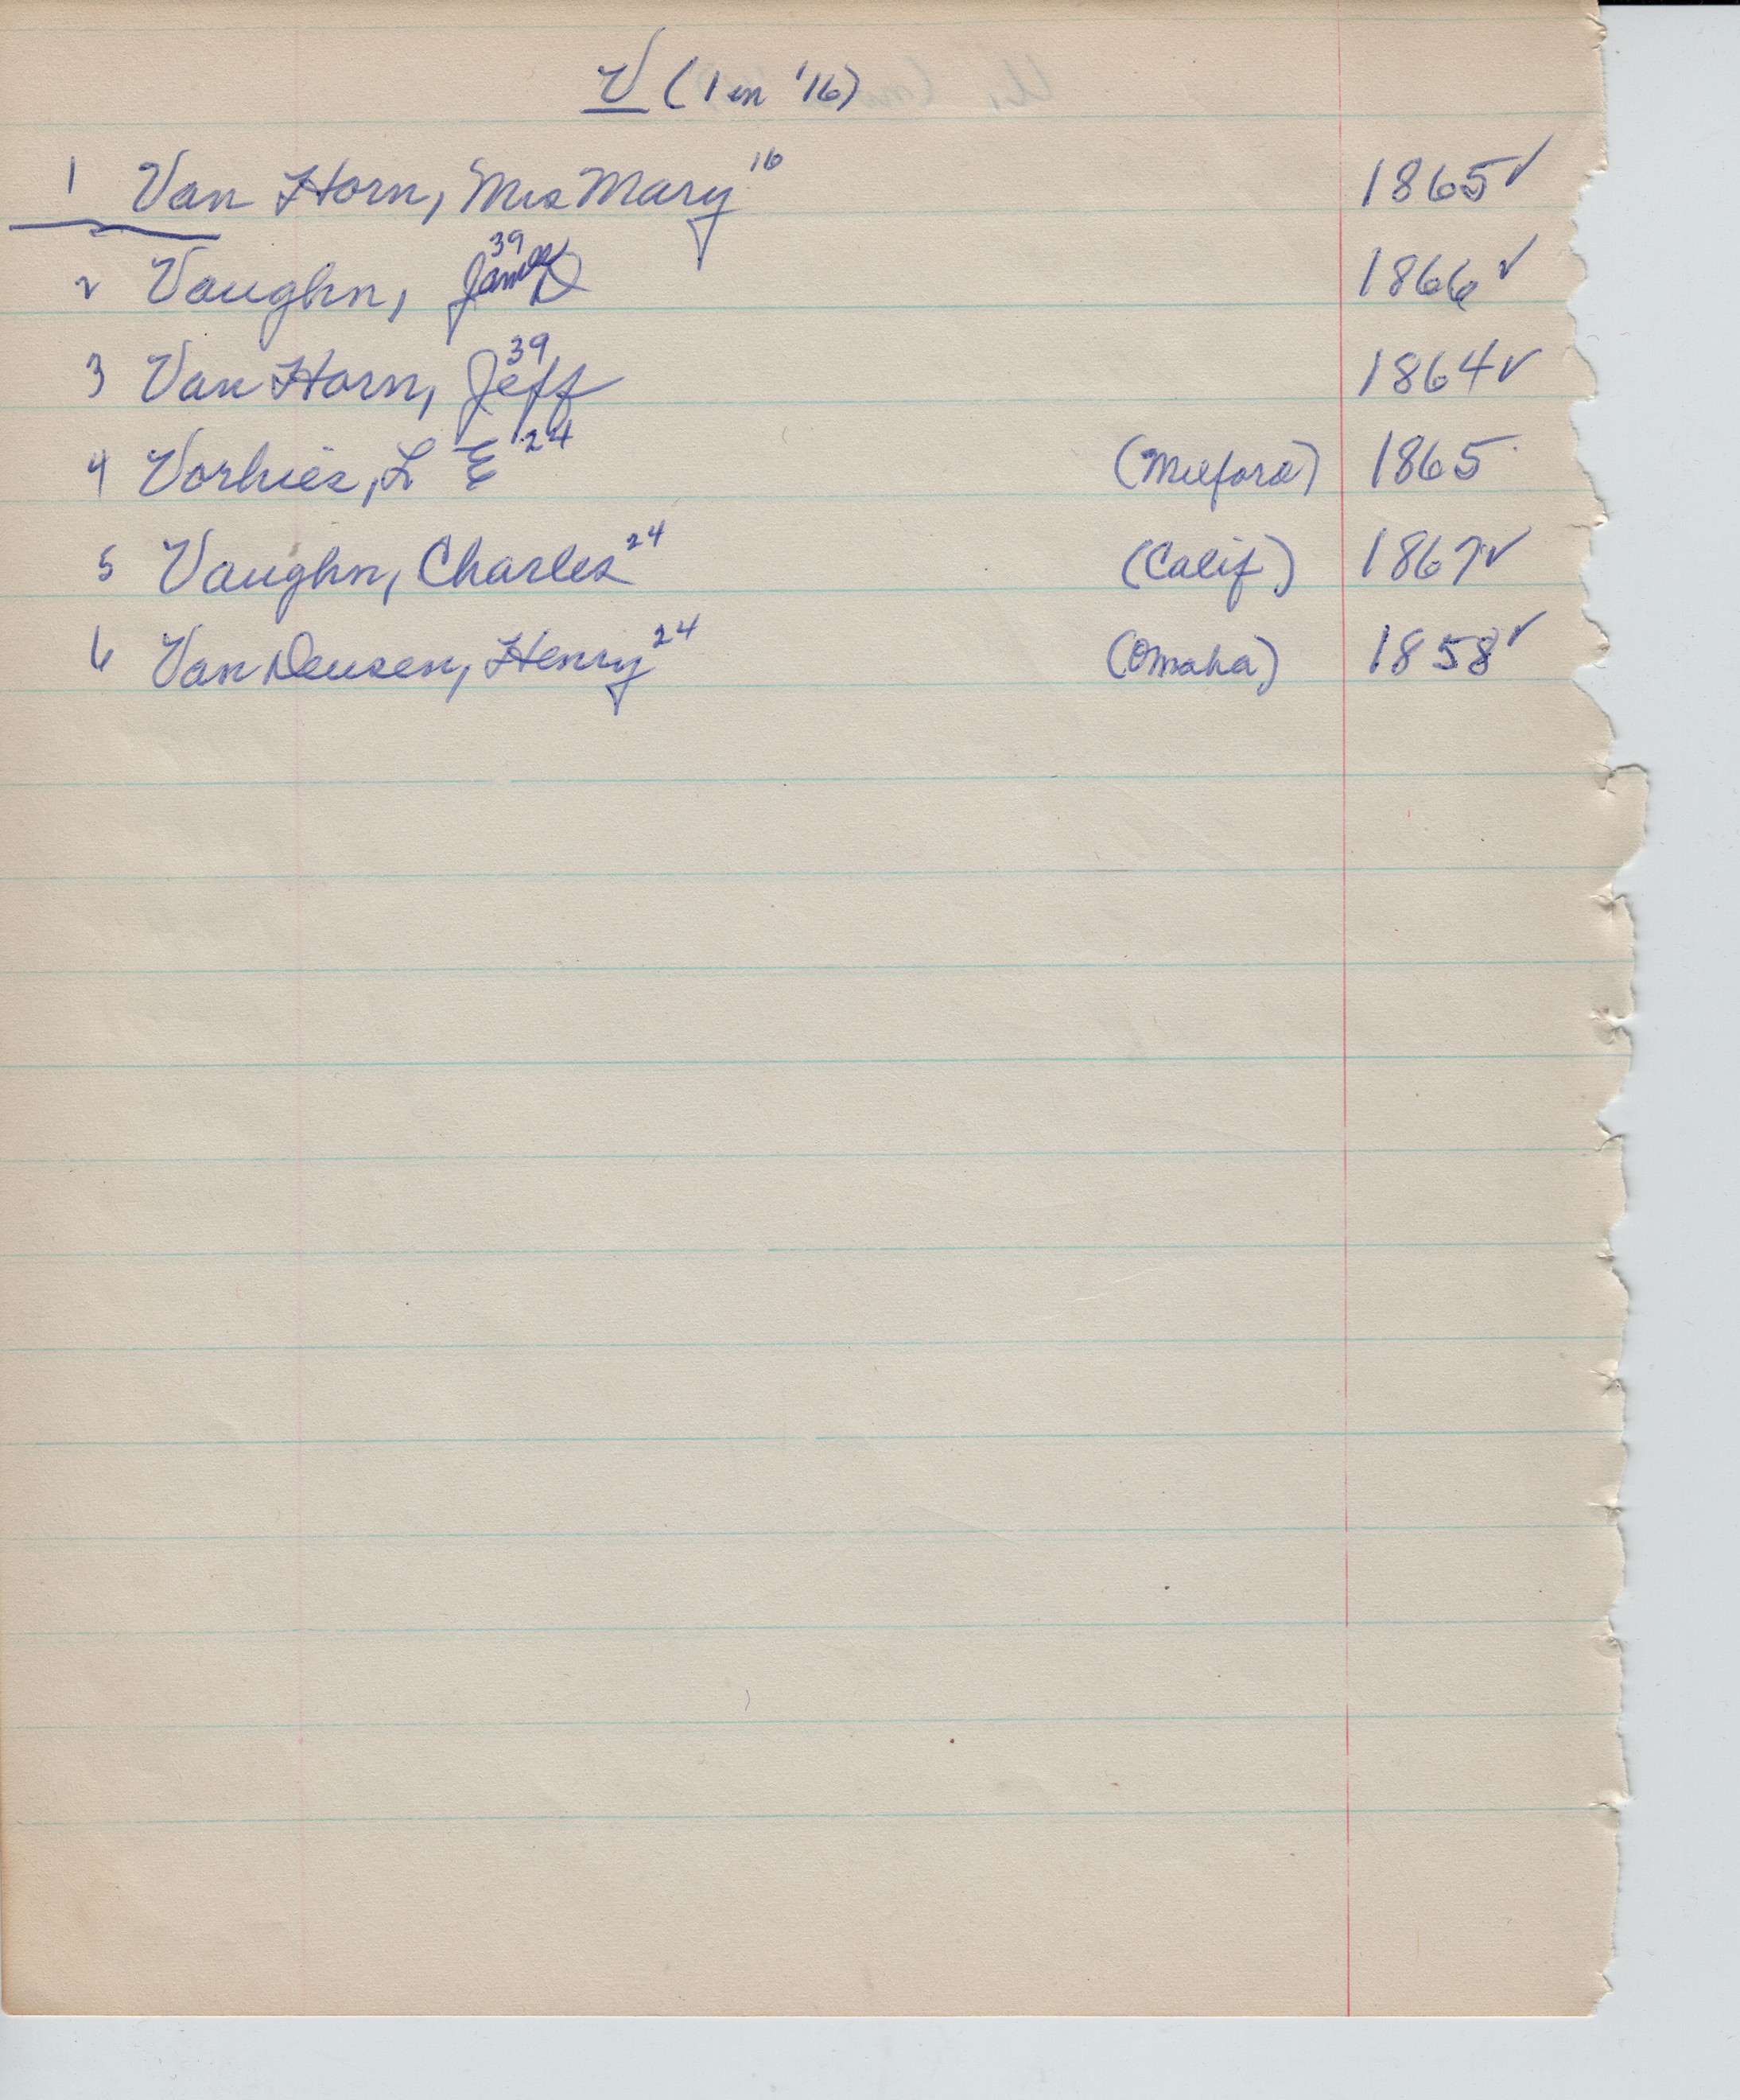 V (1 in '16)
1 Van Horn, Mrs Mary 16 1865 ✓
2 Vaughn, James D 39 1866 ✓
3 Van Horn, Jeff 39 1864 ✓
4 Vorhies, L E 24 (Milford) 1865
5 Vaughn, Charles 24 (Calif) 1867 ✓
6 Van Deusen, Henry 24 (Omaha) 1858 ✓